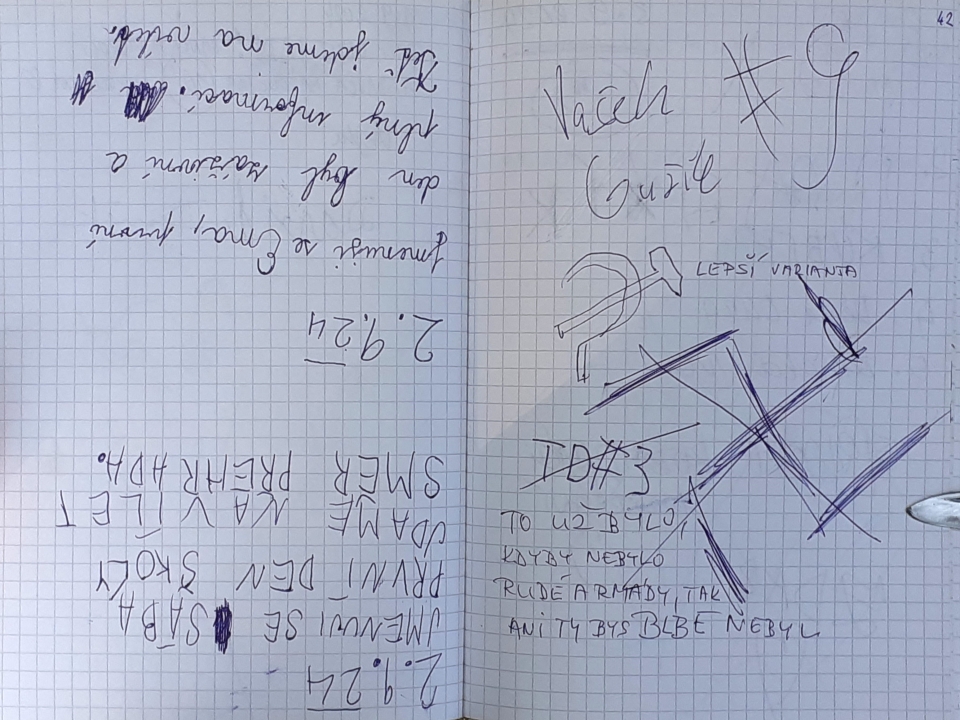 2.9.24
JMENUJI SE SÁBA
PRVNÍ DEN ŠKOLY
UDAME NA VÍLET
SMER PREHRADA.
2.9.24
Jmenuji se Ema, první
den byl a
plný informací. a
Teď jdeme na
42
Vaček #9
LEPŠÍ VARIANTA
ID#3
TO UŽ BYLO
KDYBY NEBYLO
RUDÉ ARMÁDY, TAK
ANI TY BYS BLBĚ NEBYL